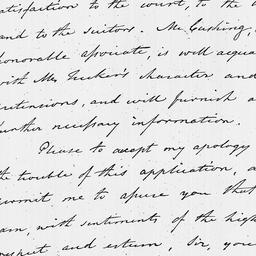 satisfaction to the court, to the
and to the suitors. Mr Cushing,
honorable associate, is well acqua
with Mr Tucker's character and
pretensions, and will furnish a
further necessary information.
Please to accept my apology
the trouble of this application, a
permit me to assure you that
am, with sentiments of the high
respect and esteem, Sir, you